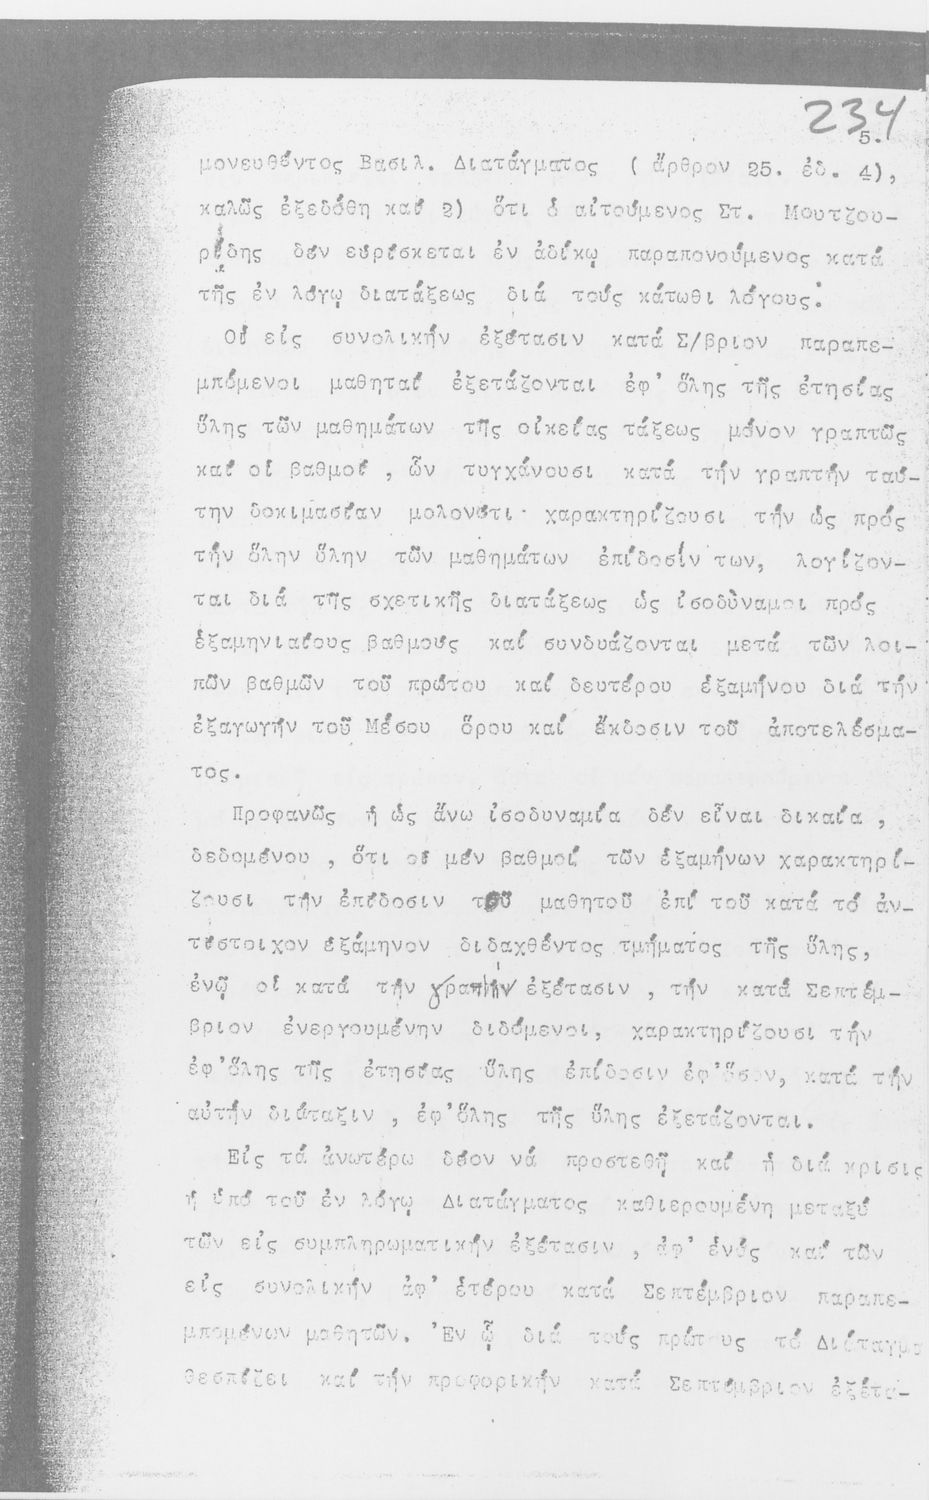 234
5.
μονευθέντος Βασιλ. Διατάγματος ( ἄρθρον 25. ἐδ. 4),
καλῶς ἐξεδόθη καί 2) ὅτι ὁ αἰτούμενος Στ. Μουτζου-
ρίδης δέν εὑρίσκεται ἐν ἀδίκῳ παραπονούμενος κατά
τῆς ἐν λόγῳ διατάξεως διά τούς κάτωθι λόγους:
Οἱ εἰς συνολικήν ἐξέτασιν κατά Σ/βριον παραπε-
μπόμενοι μαθηταί ἐξετάζονται ἐφ' ὅλης τῆς ἐτησίας
ὕλης τῶν μαθημάτων τῆς οἰκείας τάξεως μόνον γραπτῶς
καί οἱ βαθμοί , ὧν τυγχάνουσι κατά τήν γραπτήν ταύ-
την δοκιμασίαν μολονότι χαρακτηρίζουσι τήν ὡς πρός
τήν ὅλην ὕλην τῶν μαθημάτων ἐπίδοσίν των, λογίζον-
ται διά τῆς σχετικῆς διατάξεως ὡς ἰσοδύναμοι πρός
ἑξαμηνιαίους βαθμούς καί συνδυάζονται μετά τῶν λοι-
πῶν βαθμῶν τοῦ πρώτου καί δευτέρου ἑξαμήνου διά τήν
ἐξαγωγήν τοῦ Μέσου ὅρου καί ἔκδοσιν τοῦ ἀποτελέσμα-
τος.
Προφανῶς ἡ ὡς ἄνω ἰσοδυναμία δέν εἶναι δικαία ,
δεδομένου , ὅτι οἱ μέν βαθμοί τῶν ἑξαμήνων χαρακτηρί-
ζουσι τήν ἐπίδοσιν τοῦ μαθητοῦ ἐπί τοῦ κατά τό ἀν-
τίστοιχον ἑξάμηνον διδαχθέντος τμήματος τῆς ὕλης,
ἐνῷ οἱ κατά τήν γραπτήν ἐξέτασιν , τήν κατά Σεπτέμ-
βριον ἐνεργουμένην διδόμενοι, χαρακτηρίζουσι τήν
ἐφ'ὅλης τῆς ἐτησίας ὕλης ἐπίδοσιν ἐφ'ὅσον, κατά τήν
αὐτήν διάταξιν , ἐφ'ὅλης τῆς ὕλης ἐξετάζονται.
Εἰς τά ἀνωτέρω δέον νά προστεθῇ καί ἡ διά κρισις
ἡ ὑπό τοῦ ἐν λόγῳ Διατάγματος καθιερουμένη μεταξύ
τῶν εἰς συμπληρωματικήν ἐξέτασιν , ἀφ' ἑνός καί τῶν
εἰς συνολικήν ἀφ' ἑτέρου κατά Σεπτέμβριον παραπε-
μπομένων μαθητῶν. 'Εν ᾧ διά τούς πρώτους τό Διάταγμα
θεσπίζει καί τήν προφορικήν κατά Σεπτέμβριον ἐξέτα-